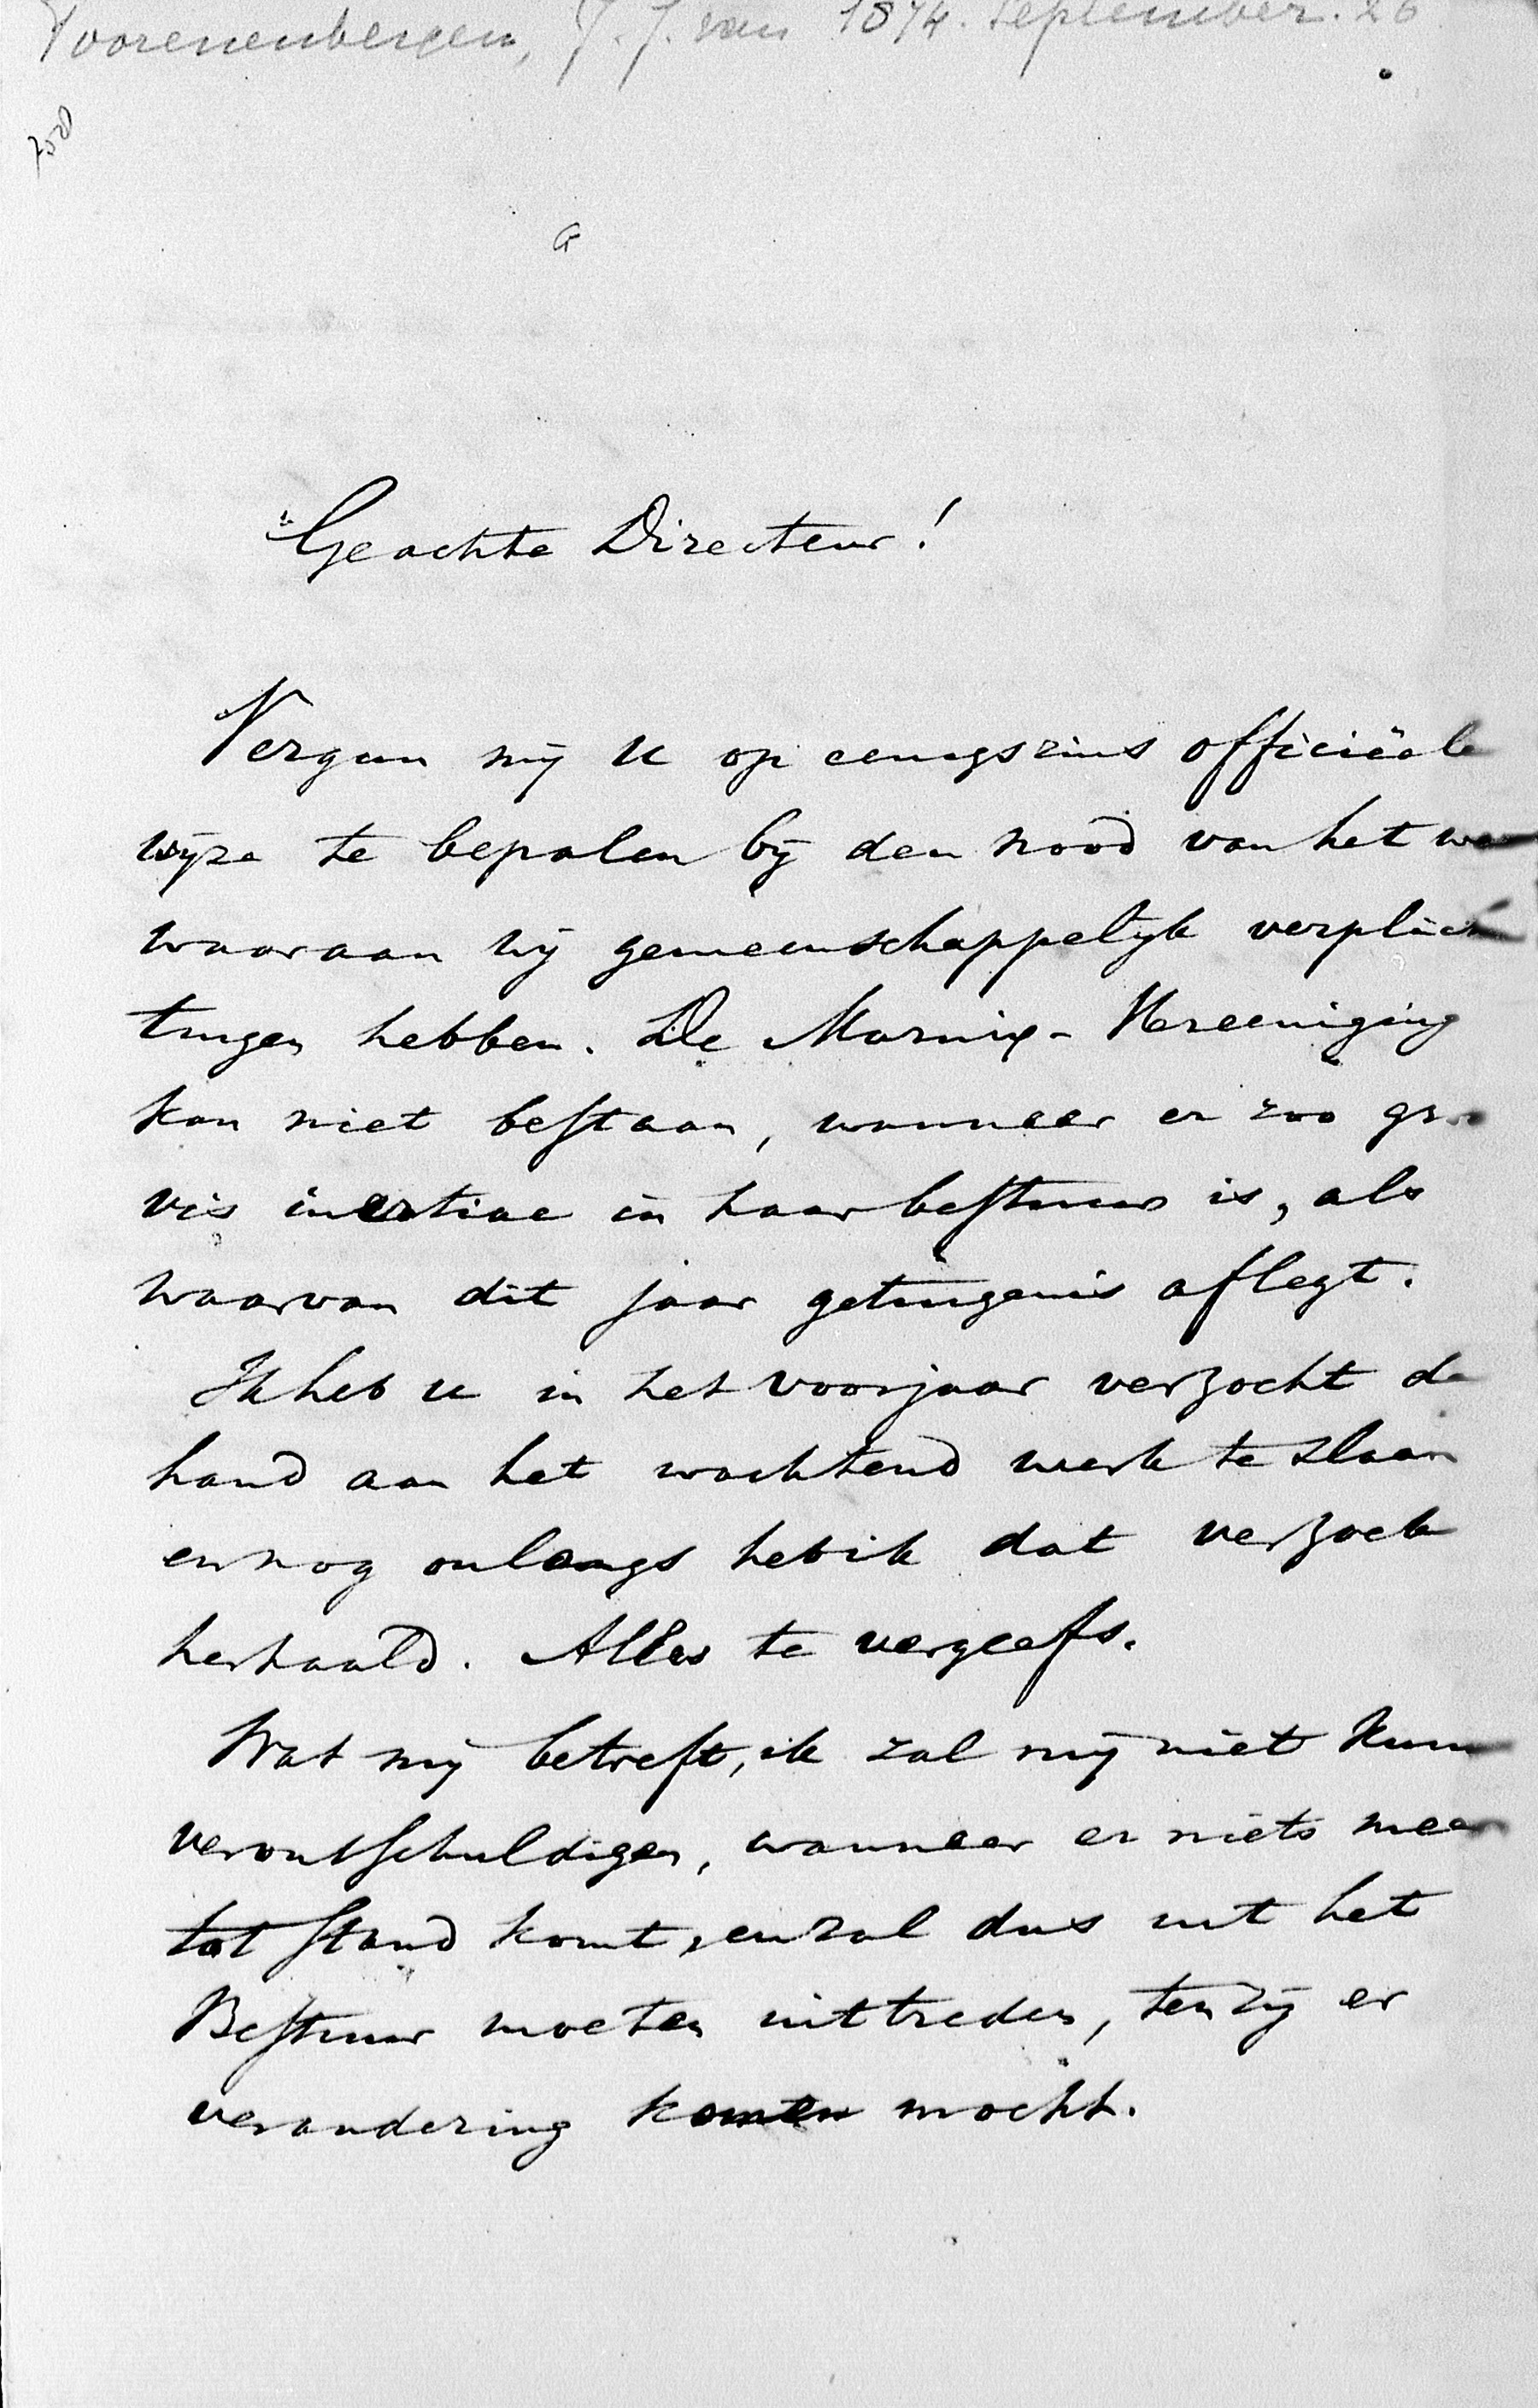 Toorenenbergen, J. J. van 1874. September. 26
750
G
Geachte Directeur!
Vergun mij U op eenigszins officiëele
wijze te bepalen bij den nood van het
waaraan wij gemeenschappelijk verplich
tingen hebben. De Marnix-Vereeniging
kan niet bestaan, wanneer er zoo gro
vis inertiae in haar bestuur is, als
waarvan dit jaar getuigenis aflegt.
Ik heb u in het voorjaar verzocht de
hand aan het wachtend werk te slaan
en nog onlangs heb ik dat verzoek
herhaald. Alles te vergeefs.
Wat mij betreft, ik zal mij niet kunn
verontschuldigen, wanneer er niets meer
tot stand komt, en zal dus uit het
Bestuur moeten uittreden, tenzij er
verandering komen mocht.